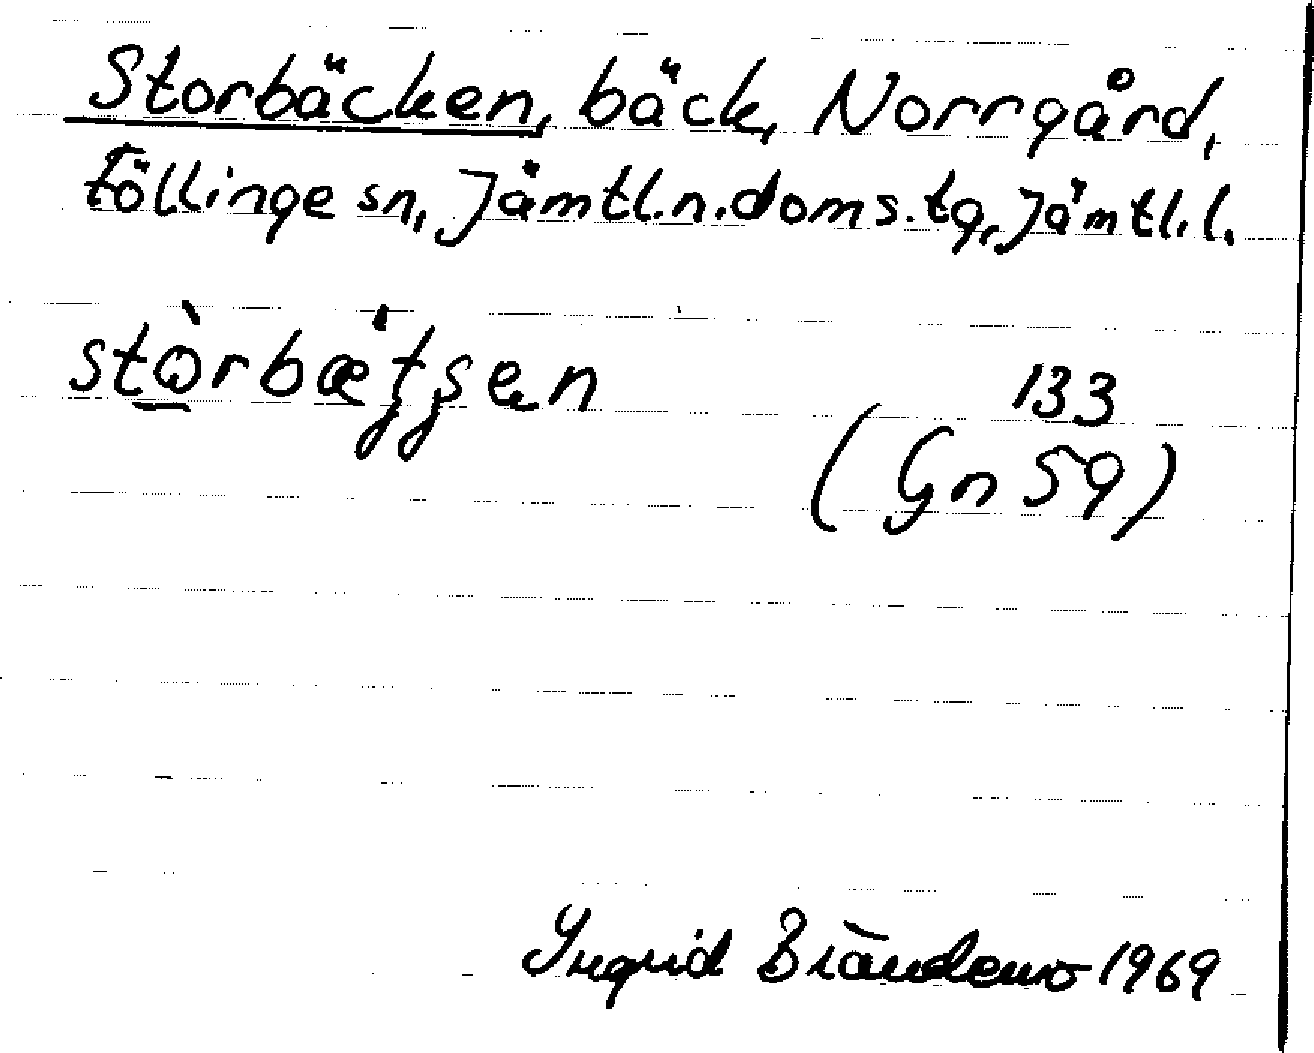 Storbäcken, bäck, Norrgård,
Föllinge sn, Jämtl.n.doms.tg, Jämtl.l.
133
(Gn 59)
Ingrid Brändemo 1969